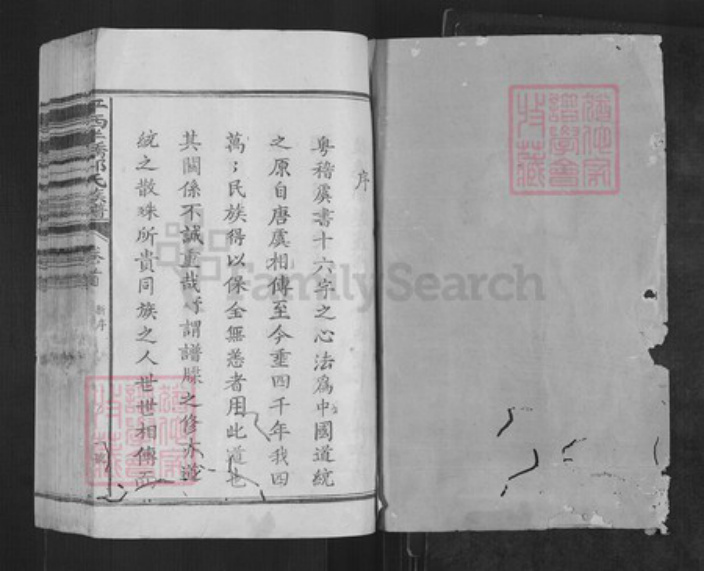 序
粤稽虞書十六字之心法為中國道統
之原自唐虞相傳至今垂四千年我四
萬〻民族得以保全無恙者用此道也
其關係不誠重哉所謂譜牒之修亦道
統之散殊所貴同族之人世世相傳而
氏族譜
卷首
新序
FamilySearch